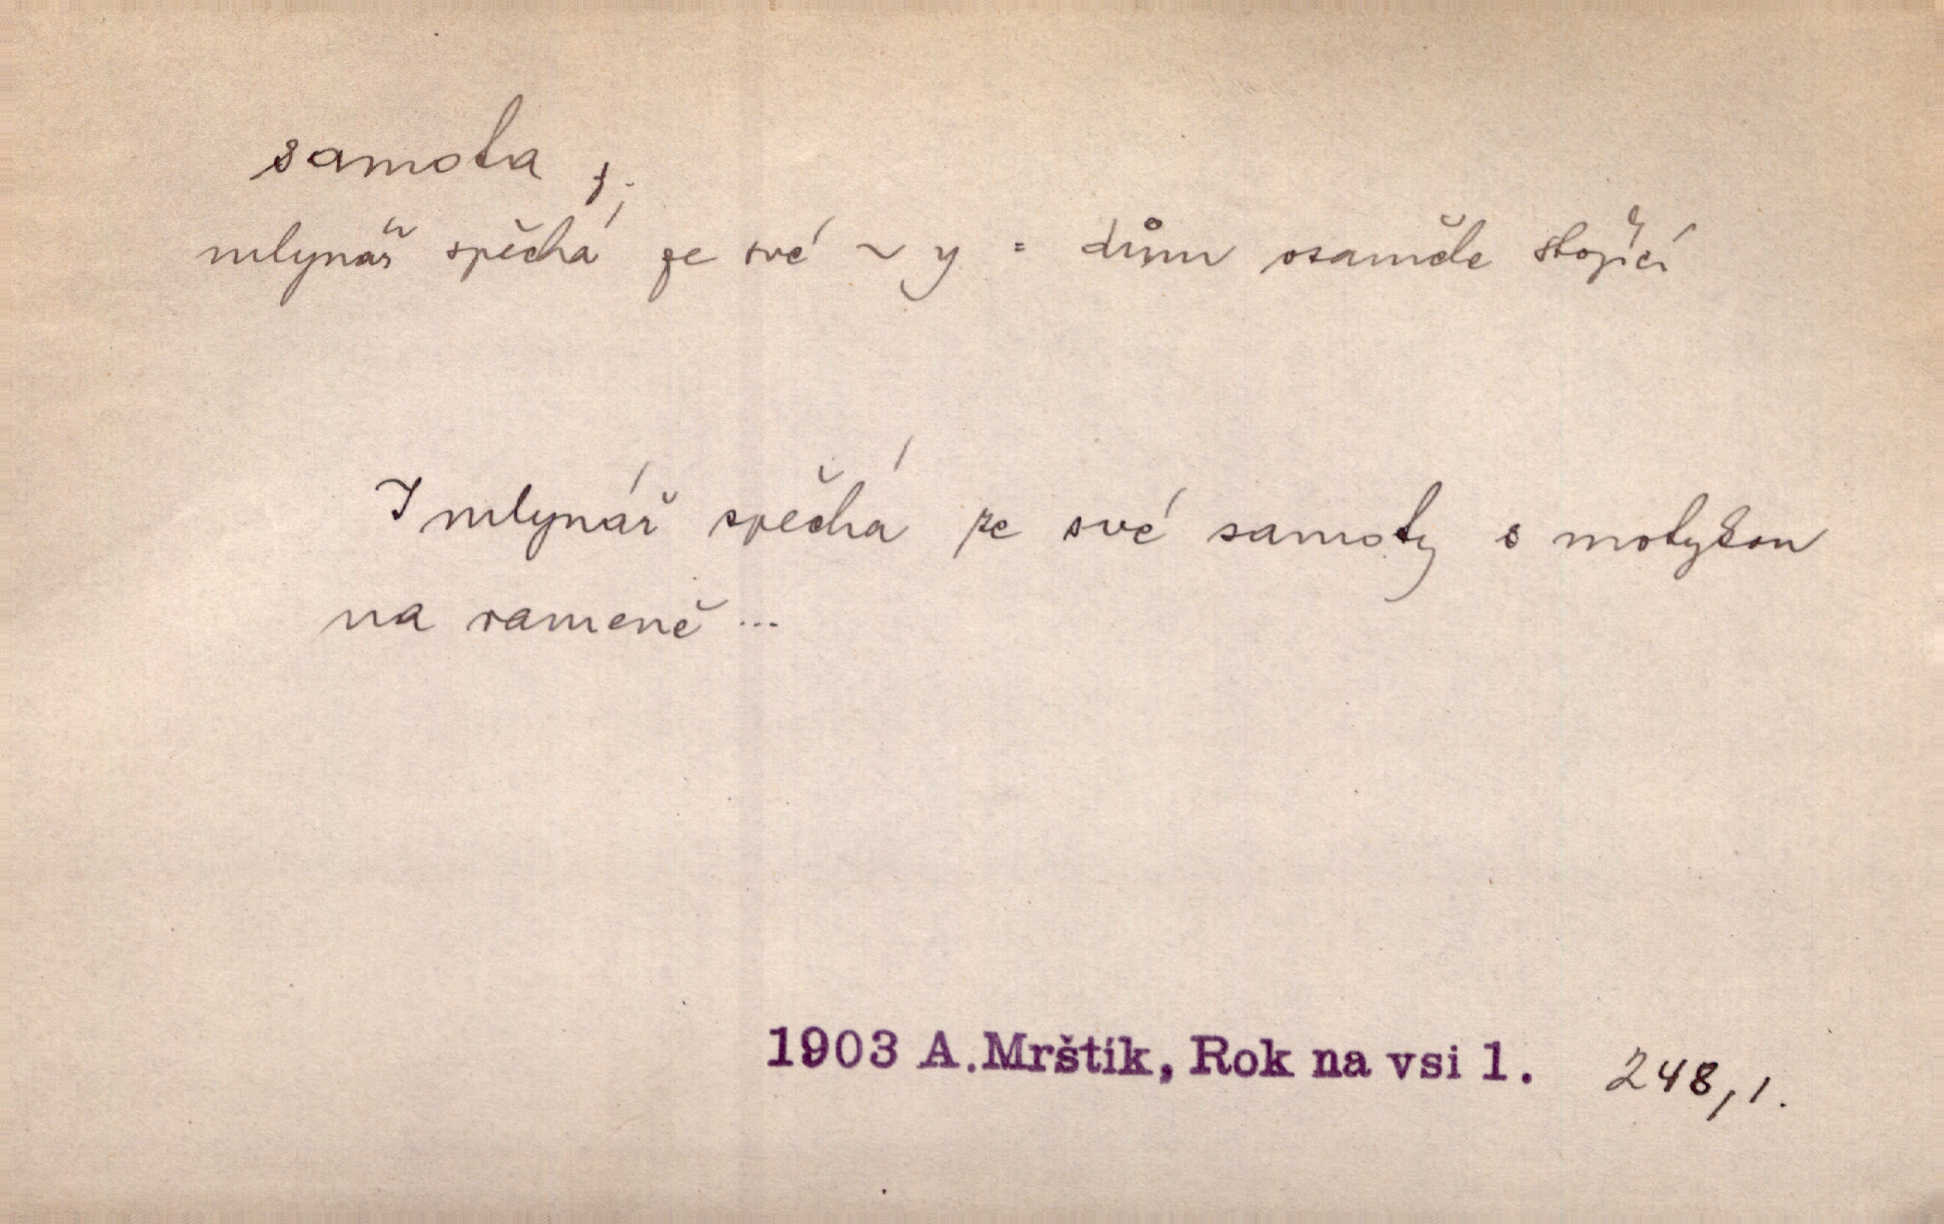 samota, f.
mlynář spěchá ze své ~y = dům osaměle stojící
I mlynář spěchá ze své samoty s motykou
na rameně ...
1903 A. Mrštík, Rok na vsi 1. 248, 1.